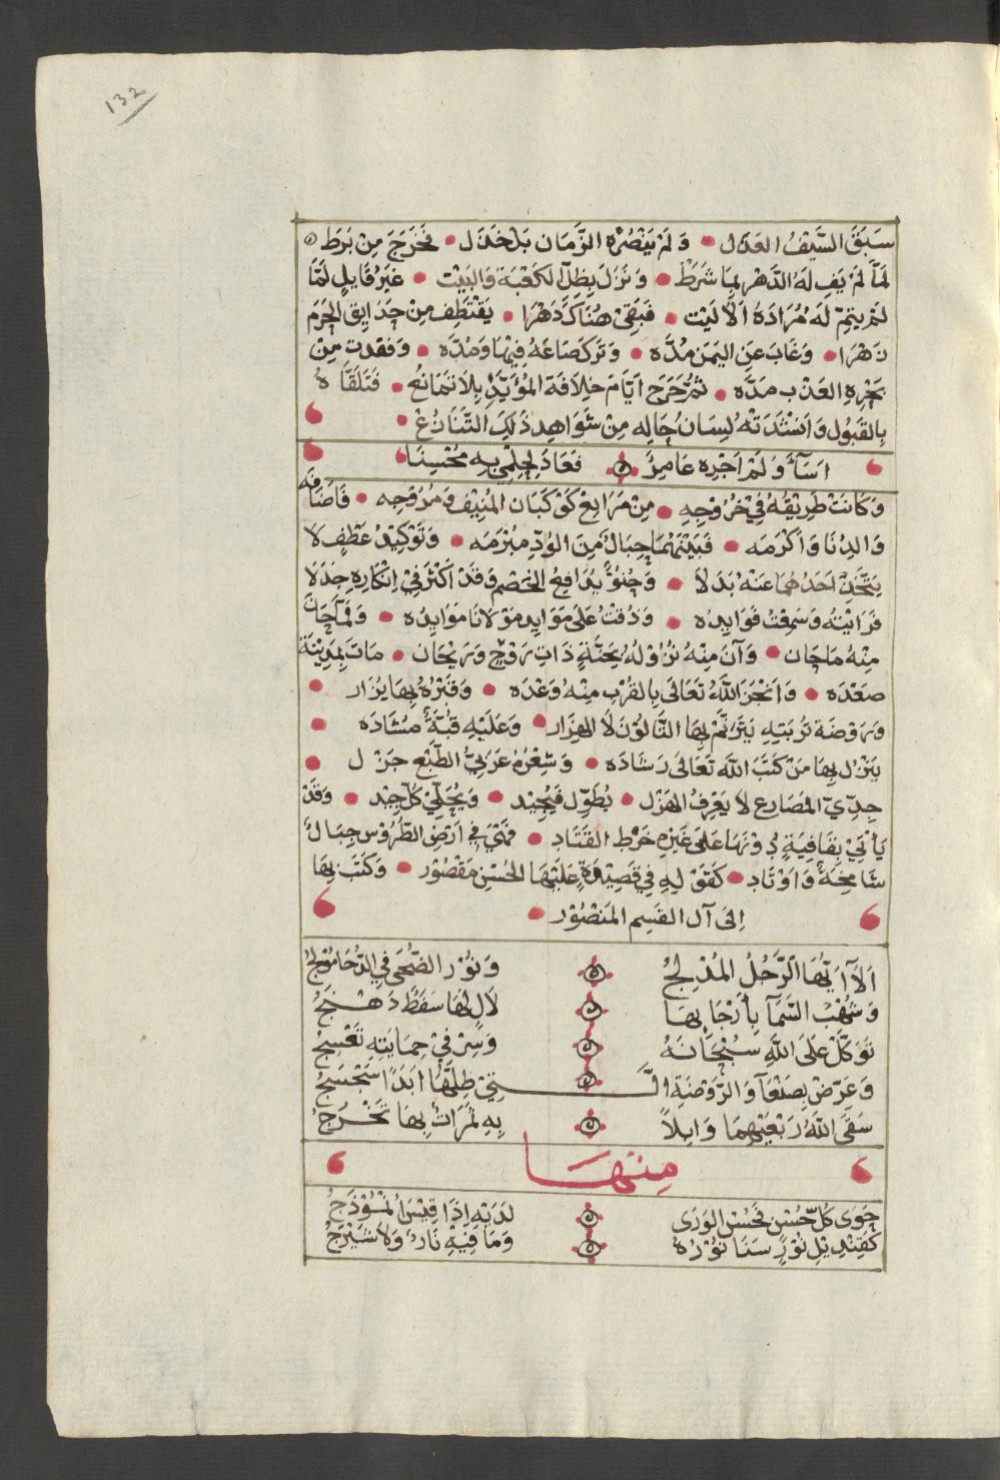 132
سَبَقَ السَّيْفُ العَذَل • وَلَمْ يَنْصُرْهُ الزَّمَان بَلْ خَذَل • فَخَرَجَ مِنْ بَرَط
لَمَّا لَمْ يَفِ لَهُ الدَّهْر بِمَا شَرَطْ • وَنَزَلَ بِظِلّ الكَعْبَة وَالبَيْت • غَيرُ قَايِلٍ لَمَّا
لَمْ يَتِمّ لَهُ مُرَادَهُ اَلَا لَيْت • فَبَقِيْ هُنَاكَ دَهْرَا • يَقْتَطِف مِنْ حَدَايِق الحَرَم
زَهْرَا • وَغَابَ عَنِ اليَمَن مُدَّه • وَتَرَكَ صَاعَهُ فِيْهَا وَمُدَّه • وَفقدت مِنْ
بَحْرِهِ العَذْب مَدَّه • ثمَّ خَرَجَ اَيَّامَ خِلَافَة المُؤَيَّدِ بِلَا تَمَانُع • فَتَلَقَّاهُ
بِالقَبُول وَاَنْشَدَتْهُ لِسَانُ حَالِه مِنْ شَوَاهِد ذَلِكَ التَّنَازُعْ •
اَسَآءَ وَلَمْ اَجْزِه عَامِرٌ فَعَادَ لِحِلْمِي بِهِ مُحْسِنَا
وَكَانَتْ طَرِيْقُهُ فِيْ خُرُوْجِهِ • مِنْ مَرَابِعْ كَوْكَبَان المُنِيْف وَمُرُوْجِه • فَاَضَافَه
وَالِدُنَا وَاَكْرَمَه • فَبَيْنَهُمَا حِبَالٌ مِنَ الوُدِّ مبْرَمَه • وَتَوْكِيْدُ عَطْفٍ لَا
يَتَّخِذُ اَحَدُهُمَا عَنْهُ بَدَلَا • يُدَافِعُ الخَصْم وَقَدْ اَكْثَرَ فِيْ اِنْكَارِهِ جَدَلَا
فَرَاَيْتُه وَسَمِعْتُ فَوَايِدَه • وَذُقْتُ عَلَى مَوَايِد مَوْلَانَا مَوَايِدَه • وَلَمَّا حَانَ
مِنْهُ مَا حَان • وَآنَ مِنْهُ نُزُوْلُهُ بِجَنَّةٍ ذَاتِ رَوْحٍ وَرَيْحَان • مَاتَ بِمَدِيْنَة
صَعْدَه • وَاَنْجَزَ اللّٰهُ تَعَالَى بِالقُرْبِ مِنْهُ وَعْدَه • وَقَبْرُهُ بِهَا يُزَار •
وَرَوْضَة تُرْبَتِهِ يَتَرَنَّم بِهَا التَّالُوْنَ لَا الهزَار • وَعَلَيْهِ قُبَّةٌ مُشَادَه •
يَنْزِل بِهَا مَنْ كَتَبَ اللّٰه تَعَالَى رَشَادَه • وَشِعْرُهُ عَرَبِيُّ الطَّبْع جَزْل •
جِدِّيّ المَصَارِع لَا يَعْرِفُ الهَزْل • يُطَوِّل فَيُجِيْد • وَيُحَلِّيْ كُلّ جِيْد • وَقَدْ
يَأْتِيْ بِقَافِيَةٍ دُوْنَهَا عَلَى غَيْرِهِ خَرْط القَتَاد • فَهْيَ فِي اَرْضِ الطُّرُوْس جِبَالٌ
شَامِخَةٌ وَاَوْتَاد • كَقَوْلِهِ فِي قَصِيْدَةٍ عَلَيْهَا الحُسْن مَقْصُوْر • وَكَتَبَ بِهَا
اِلَى آلِ القٰسِم المَنْصُوْر •
اَلَآ اَيُّهَا الرَّجُلُ المُدْلِجُ وَنُوْر الضُّحَى فِي الدُّجَا مُوْلَجُ
وَشُهْبُ السَّمَآ بِأَرْجَايِهَا لَآلٍ لَهَا سَفَطٌ دَهْنَجُ
تَوَكَّلْ عَلَى اللّٰهِ سُبْحَانَهُ وَسِرْ فِيْ حِمَايَتِهِ تَعْسِجُ
وَعَرِّضْ بِصَنْعَآ وَالرَّوْضَةِ الَّتِيْ ظِلُّهَا اَبَدًا سَجْسَجُ
سَقَى اللّٰهُ رَبْعَيْهِمَا وَابِلاً بِهِ ثَمَرَاتٌ بِهَا تَخْرُجُ
مِنْهَا
حَوَى كُلّ حُسْنٍ فَحُسْن الوَرَى لَدَيْهِ اِذَا قِيْسَ اُنْمُوْذَجُ
كَقِنْدِيْلِ نُوْرٍ سَنَا نُوْرُهُ وَمَا فِيْهِ نَارٌ وَلَا شَيْرَجُ